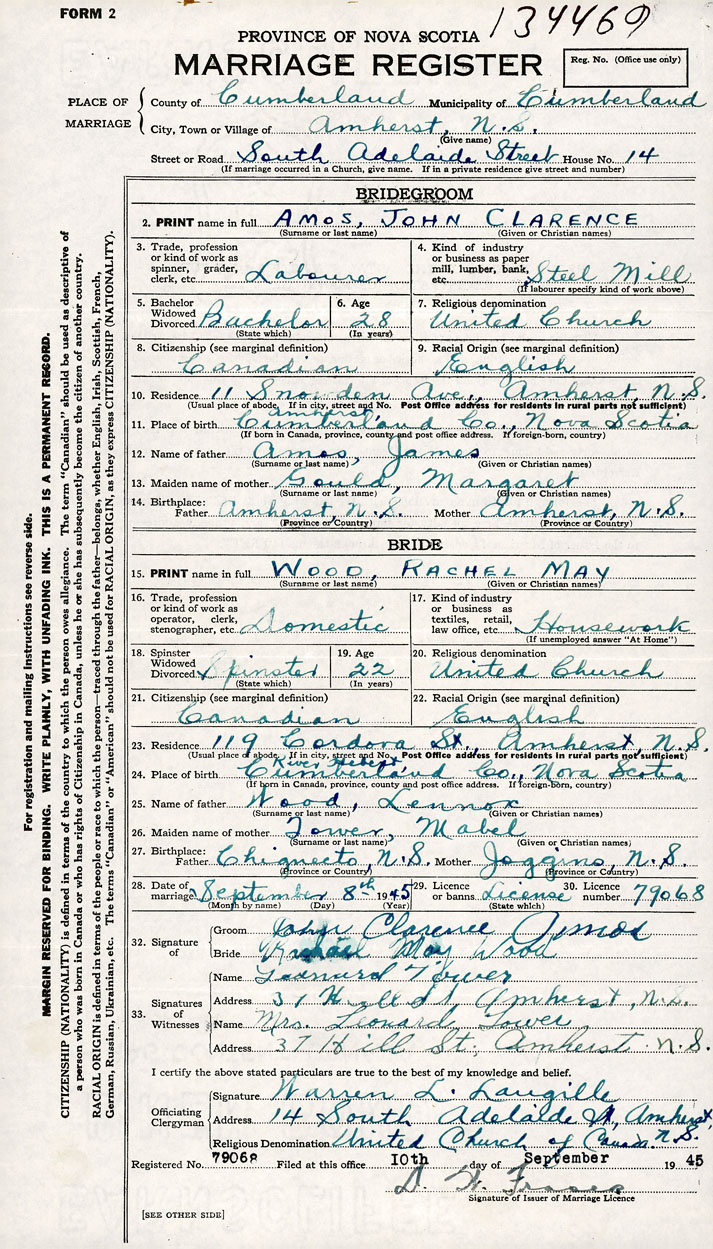 FORM 2
134469
PROVINCE OF NOVA SCOTIA
MARRIAGE REGISTER
Reg. No. (Office use only)
PLACE OF MARRIAGE
County of Cumberland Municipality of Cumberland
City, Town or Village of Amherst, N.S.
(Give name)
Street or Road South Adelaide Street House No. 14
(If marriage occurred in a Church, give name. If in a private residence give street and number)
BRIDEGROOM
2. PRINT name in full AMOS, JOHN CLARENCE
(Surname or last name) (Given or Christian names)
3. Trade, profession or kind of work as spinner, grader, clerk, etc. Labourer
4. Kind of industry or business as paper mill, lumber, bank, etc. Steel Mill
(If labourer specify kind of work above)
5. Bachelor Widowed Divorced Bachelor
(State which)
6. Age 28
(In years)
7. Religious denomination United Church
8. Citizenship (see marginal definition) Canadian
9. Racial Origin (see marginal definition) English
10. Residence 11 Snowden Ave., Amherst, N.S.
(Usual place of abode. If in city, street and No. Post Office address for residents in rural parts not sufficient)
Amherst,
11. Place of birth Cumberland Co., Nova Scotia
(If born in Canada, province, county and post office address. If foreign-born, country)
12. Name of father Amos, James
(Surname or last name) (Given or Christian names)
13. Maiden name of mother Gould, Margaret
(Surname or last name) (Given or Christian names)
14. Birthplace: Father Amherst, N.S. Mother Amherst, N.S.
(Province or Country) (Province or Country)
BRIDE
15. PRINT name in full WOOD, RACHEL MAY
(Surname or last name) (Given or Christian names)
16. Trade, profession or kind of work as operator, clerk, stenographer, etc. Domestic
17. Kind of industry or business as textiles, retail, law office, etc. Housework
(If unemployed answer "At Home")
18. Spinster Widowed Divorced Spinster
(State which)
19. Age 22
(In years)
20. Religious denomination United Church
21. Citizenship (see marginal definition) Canadian
22. Racial Origin (see marginal definition) English
23. Residence 119 Cordova St., Amherst, N.S.
(Usual place of abode. If in city, street and No. Post Office address for residents in rural parts not sufficient)
River Hebert
24. Place of birth Cumberland Co., Nova Scotia
(If born in Canada, province, county and post office address. If foreign-born, country)
25. Name of father Wood, Lennox
(Surname or last name) (Given or Christian names)
26. Maiden name of mother Tower, Mabel
(Surname or last name) (Given or Christian names)
27. Birthplace: Father Chignecto, N.S. Mother Joggins, N.S.
(Province or Country) (Province or Country)
28. Date of marriage September 8th 1945
(Month by name) (Day) (Year)
29. Licence or banns License
(State which)
30. Licence number 79068
32. Signature of
Groom John Clarence Amos
Bride Rachael May Wood
33. Signatures of Witnesses
Name Leonard Tower
Address 37 Hill St, Amherst, N.S.
Name Mrs. Leonard Tower
Address 37 Hill St., Amherst N.S.
I certify the above stated particulars are true to the best of my knowledge and belief.
Officiating Clergyman
Signature Warren L. Langille
Address 14 South Adelaide St, Amherst,
Religious Denomination United Church of Canada. N.S.
Registered No. 79068 Filed at this office 10th day of September 1945
D. W. Fraser
Signature of Issuer of Marriage Licence
[SEE OTHER SIDE]
For registration and mailing instructions see reverse side.
MARGIN RESERVED FOR BINDING. WRITE PLAINLY, WITH UNFADING INK. THIS IS A PERMANENT RECORD.
CITIZENSHIP (NATIONALITY) is defined in terms of the country to which the person owes allegiance. The term "Canadian" should be used as descriptive of
a person who was born in Canada or who has rights of Citizenship in Canada, unless he or she has subsequently become the citizen of another country.
RACIAL ORIGIN is defined in terms of the people or race to which the person—traced through the father—belongs, whether English, Irish, Scottish, French,
German, Russian, Ukrainian, etc. The terms "Canadian" or "American" should not be used for RACIAL ORIGIN, as they express CITIZENSHIP (NATIONALITY).